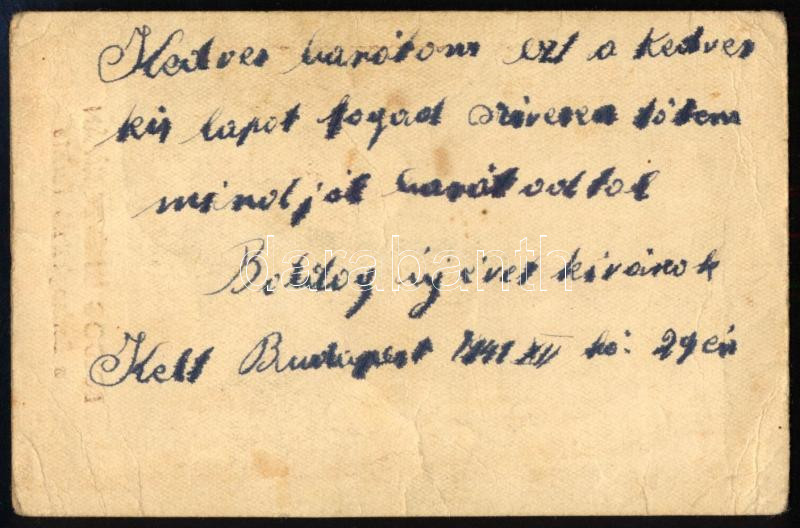 Kedves barátom ezt a kedves
kis lapot fogad szivesen tőlem
mind jó barátodtol
Boldog új évet kivánok
Kelt Budapest 1941 XII hó. 29 én
darabanth